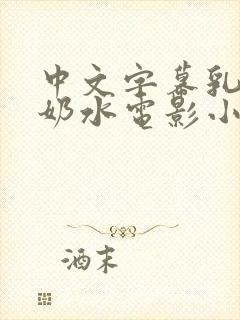 中文字幕乳
奶水电影小
酒末